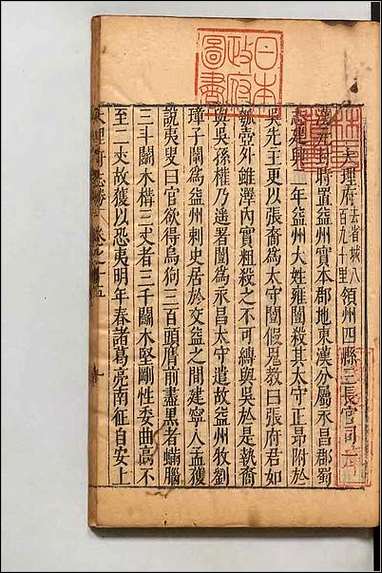 日本
政府
圖書
大理府去省城八百九十里領州四縣三長官司一
漢元封時置益州實本郡地東漢分屬永昌郡蜀
志建興一年益州大姓雍闓殺其太守正昂附於
吳先主更以張裔爲太守闓假鬼教曰張府君如
瓠壺外雖澤內實粗殺之不可縛與吳於是執裔
與吳孫權乃遙署闓爲永昌太守遣故益州牧劉
璋子闡爲益州刺史居於交益之間建寧人孟獲
說夷叟曰官欲得烏狗三百頭膺前盡黑者蟎腦
三斗闘木構三丈者三千闘木堅剛性委曲高不
至二丈故獲以恐夷明年春諸葛亮南征自安上